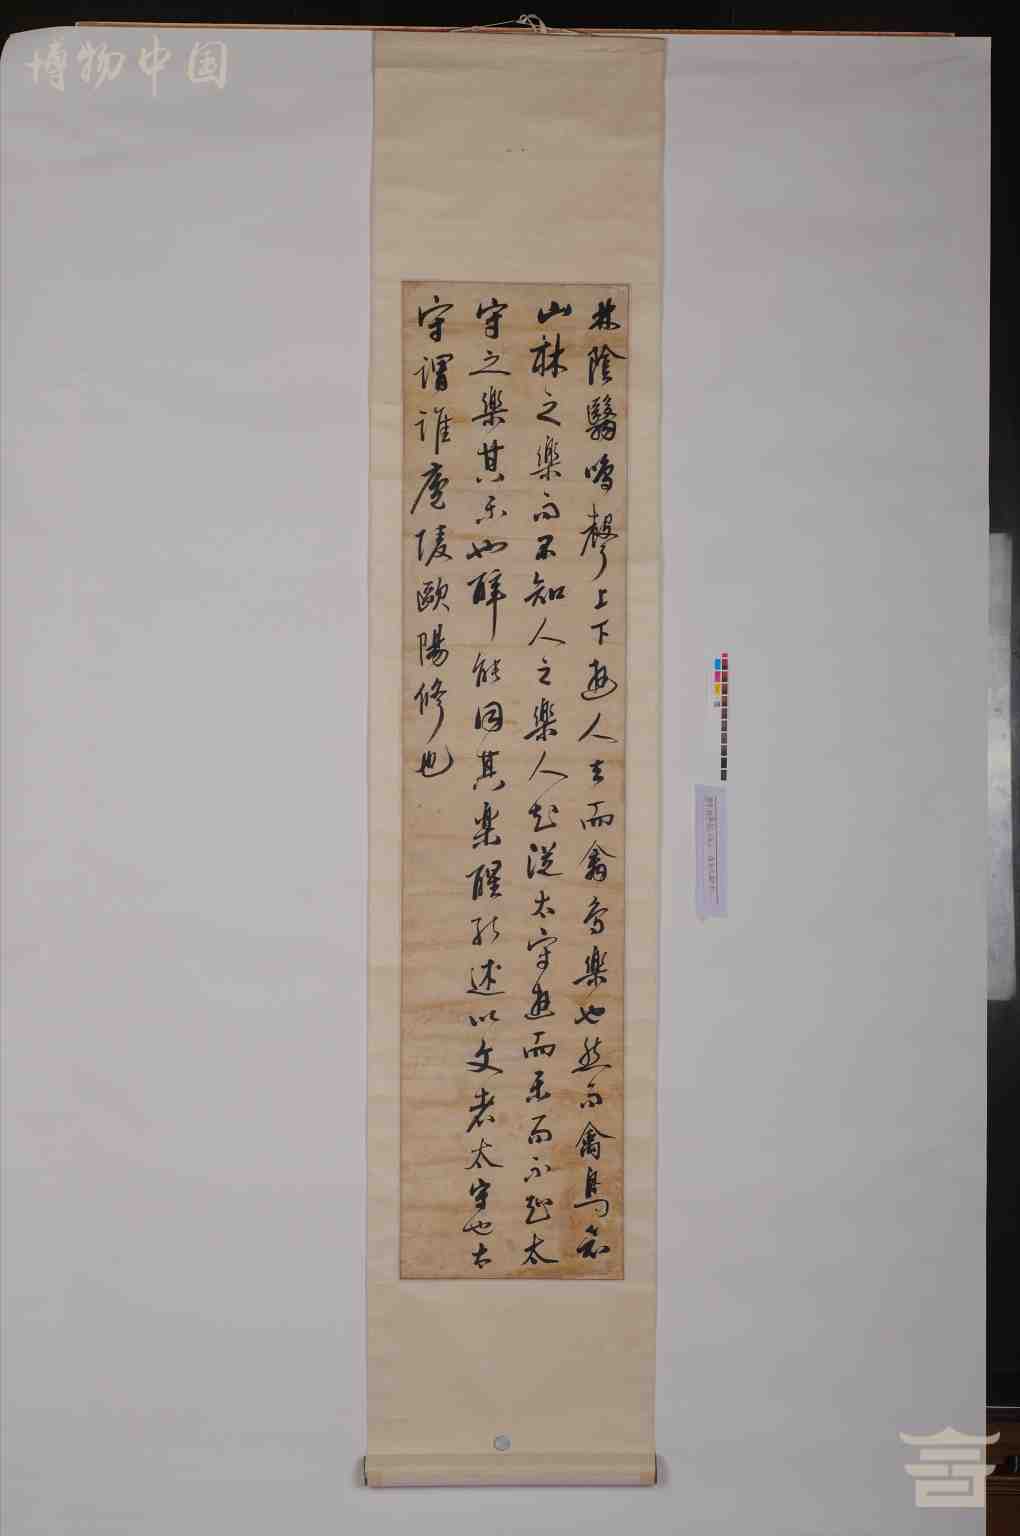 博物中国
林陰翳鳴聲上下遊人去而禽鳥樂也然而禽鳥知
山林之樂而不知人之樂人知從太守遊而樂而不知太
守之樂其樂也醉能同其樂醒能述以文者太守也太
守謂誰廬陵歐陽修也